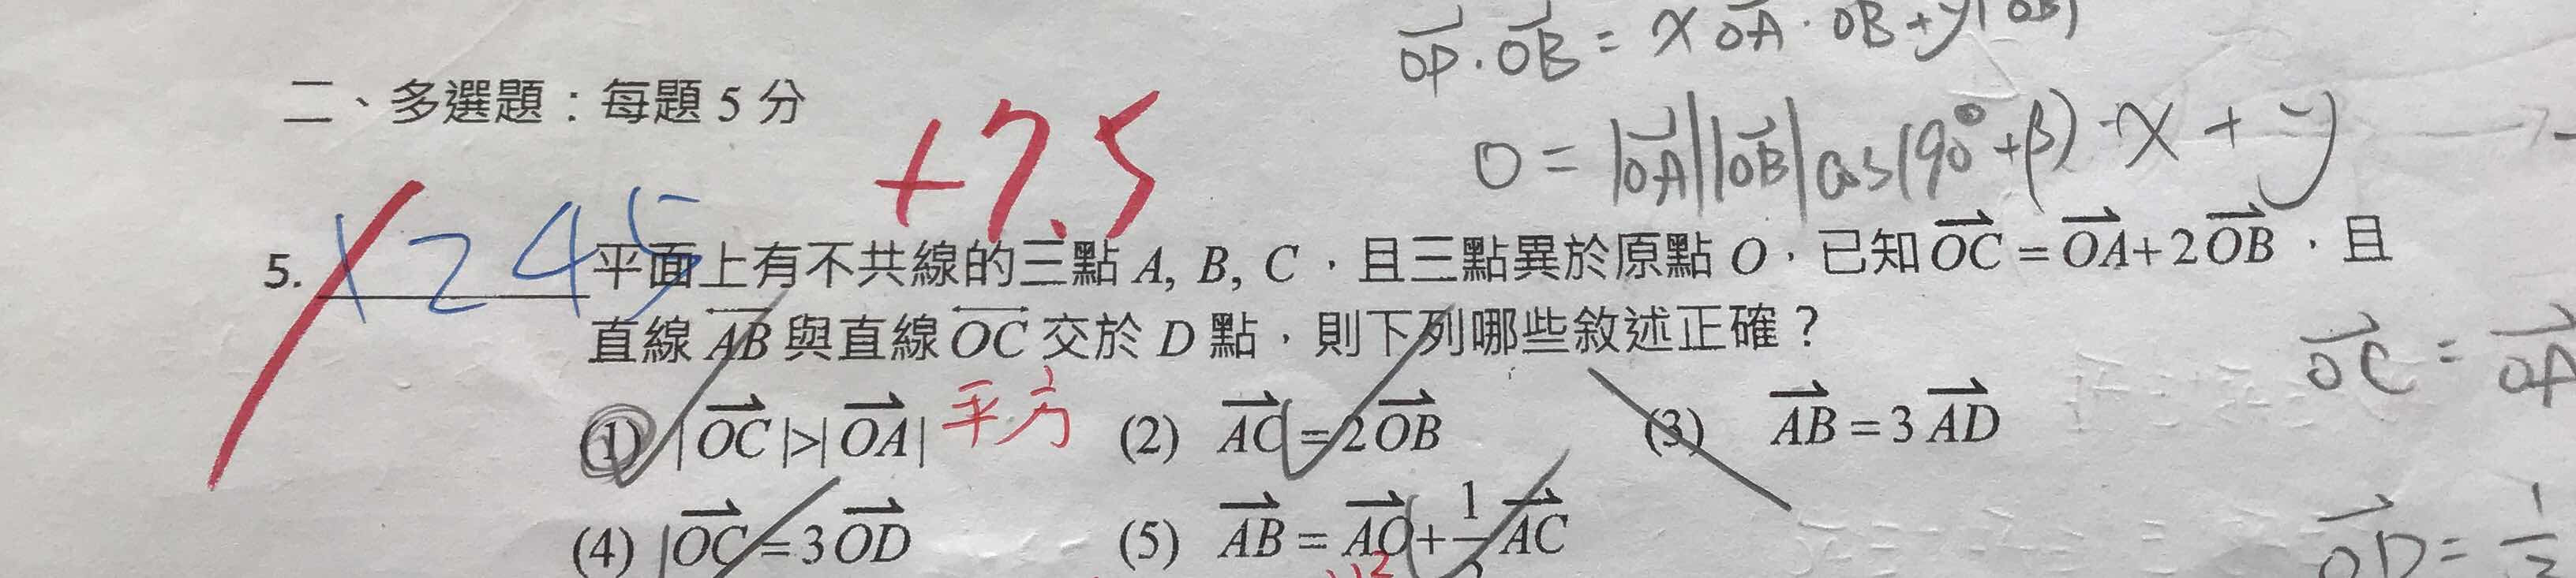 OP · OB = x OA · OB + y|OB|
二、多選題：每題 5 分
+7.5
0 = |OA||OB| cos(90° + β) · x + y
5. 1245 平面上有不共線的三點 A, B, C，且三點異於原點 O，已知 OC = OA + 2OB，且
直線 AB 與直線 OC 交於 D 點，則下列哪些敘述正確？
OC = OA
(1) |OC|>|OA| 平方 (2) AC = 2OB (3) AB = 3AD
(4) OC = 3OD (5) AB = AO + 1 AC
OD = 1